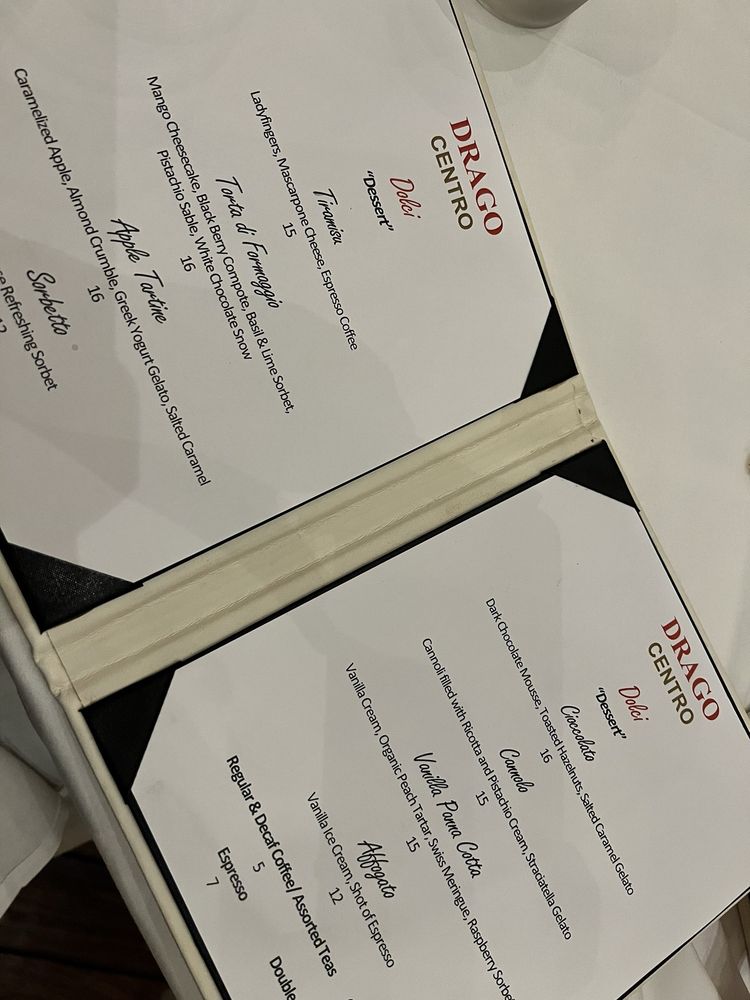 DRAGO
CENTRO
Dolci
“Dessert”
Tiramisu
Ladyfingers, Mascarpone Cheese, Espresso Coffee
15
Torta di Formaggio
Mango Cheesecake, Black Berry Compote, Basil & Lime Sorbet,
Pistachio Sable, White Chocolate Snow
16
Apple Tartine
Caramelized Apple, Almond Crumble, Greek Yogurt Gelato, Salted Caramel
16
Sorbetto
Refreshing Sorbet
DRAGO
CENTRO
Dolci
“Dessert”
Cioccolato
Dark Chocolate Mousse, Toasted Hazelnuts, Salted Caramel Gelato
16
Cannolo
Cannoli filled with Ricotta and Pistachio Cream, Straciatella Gelato
15
Vanilla Panna Cotta
Vanilla Cream, Organic Peach Tartar, Swiss Meringue, Raspberry Sorbe
15
Affogato
Vanilla Ice Cream, Shot of Espresso
12
Regular & Decaf Coffee/ Assorted Teas
5
Espresso
7
Double